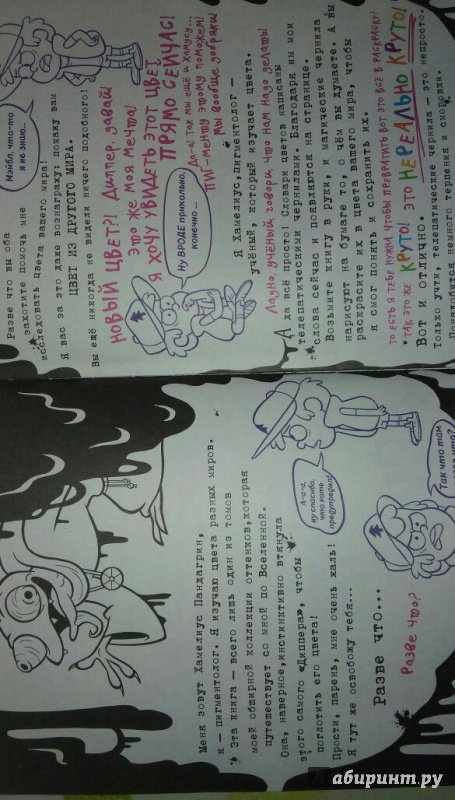 Меня зовут Хамелиус Пандагрин,
я — пигментолог. Я изучаю цвета разных миров.
Эта книга — всего лишь один из томов
моей обширной коллекции оттенков, которая
путешествует со мной по Вселенной.
Она, наверное, инстинктивно втянула
этого самого «Диппера», чтобы
поглотить его цвета!
Прости, парень, мне очень жаль!
Я тут же освобожу тебя...
Разве что...
Разве что?
А-а-а,
ну спасибо,
что хоть
предупредил!
Так что там
Разве что вы оба
захотите помочь мне
исследовать цвета вашего мира!
Я вас за это даже вознагражу: покажу вам
ЦВЕТ ИЗ ДРУГОГО МИРА.
Вы ещё никогда не видели ничего подобного!
Мэйбл, что-то
я не знаю...
НОВЫЙ ЦВЕТ?! Диппер, давай!
Это же моя мечта!
Я ХОЧУ УВИДЕТЬ ЭТОТ ЦВЕТ
ПРЯМО СЕЙЧАС!
Ну ВРОДЕ прикольно,
конечно...
Да-а! Так мы ещё и Хамусу...
ПИГ-менту этому поможем!
Мы вообще добряки!
Я Хамелиус, пигментолог —
учёный, который изучает цвета.
Ладно, учёный, говори что нам надо делать!
А да всё просто! Словари цветов написаны
телепатическими чернилами. Благодаря им мои
слова сейчас и появляются на странице.
Возьмите книгу в руки, и магические чернила
нарисуют на бумаге то, о чём вы думаете. А вы
раскрасите их в цвета вашего мира, чтобы
я смог понять и сохранить их.
ТО ЕСТЬ Я ТЕБЕ НУЖНА ЧТОБЫ ПРЕВРАТИТЬ ВОТ ЭТО ВСЁ В РАСКРАСКУ?
ТАК ЭТО ЖЕ КРУТО! ЭТО НЕРЕАЛЬНО КРУТО!
Вот и отлично.
Только учти, телепатические чернила — это непросто.
Понадобится немного терпения и сноровки.
абиринт.ру